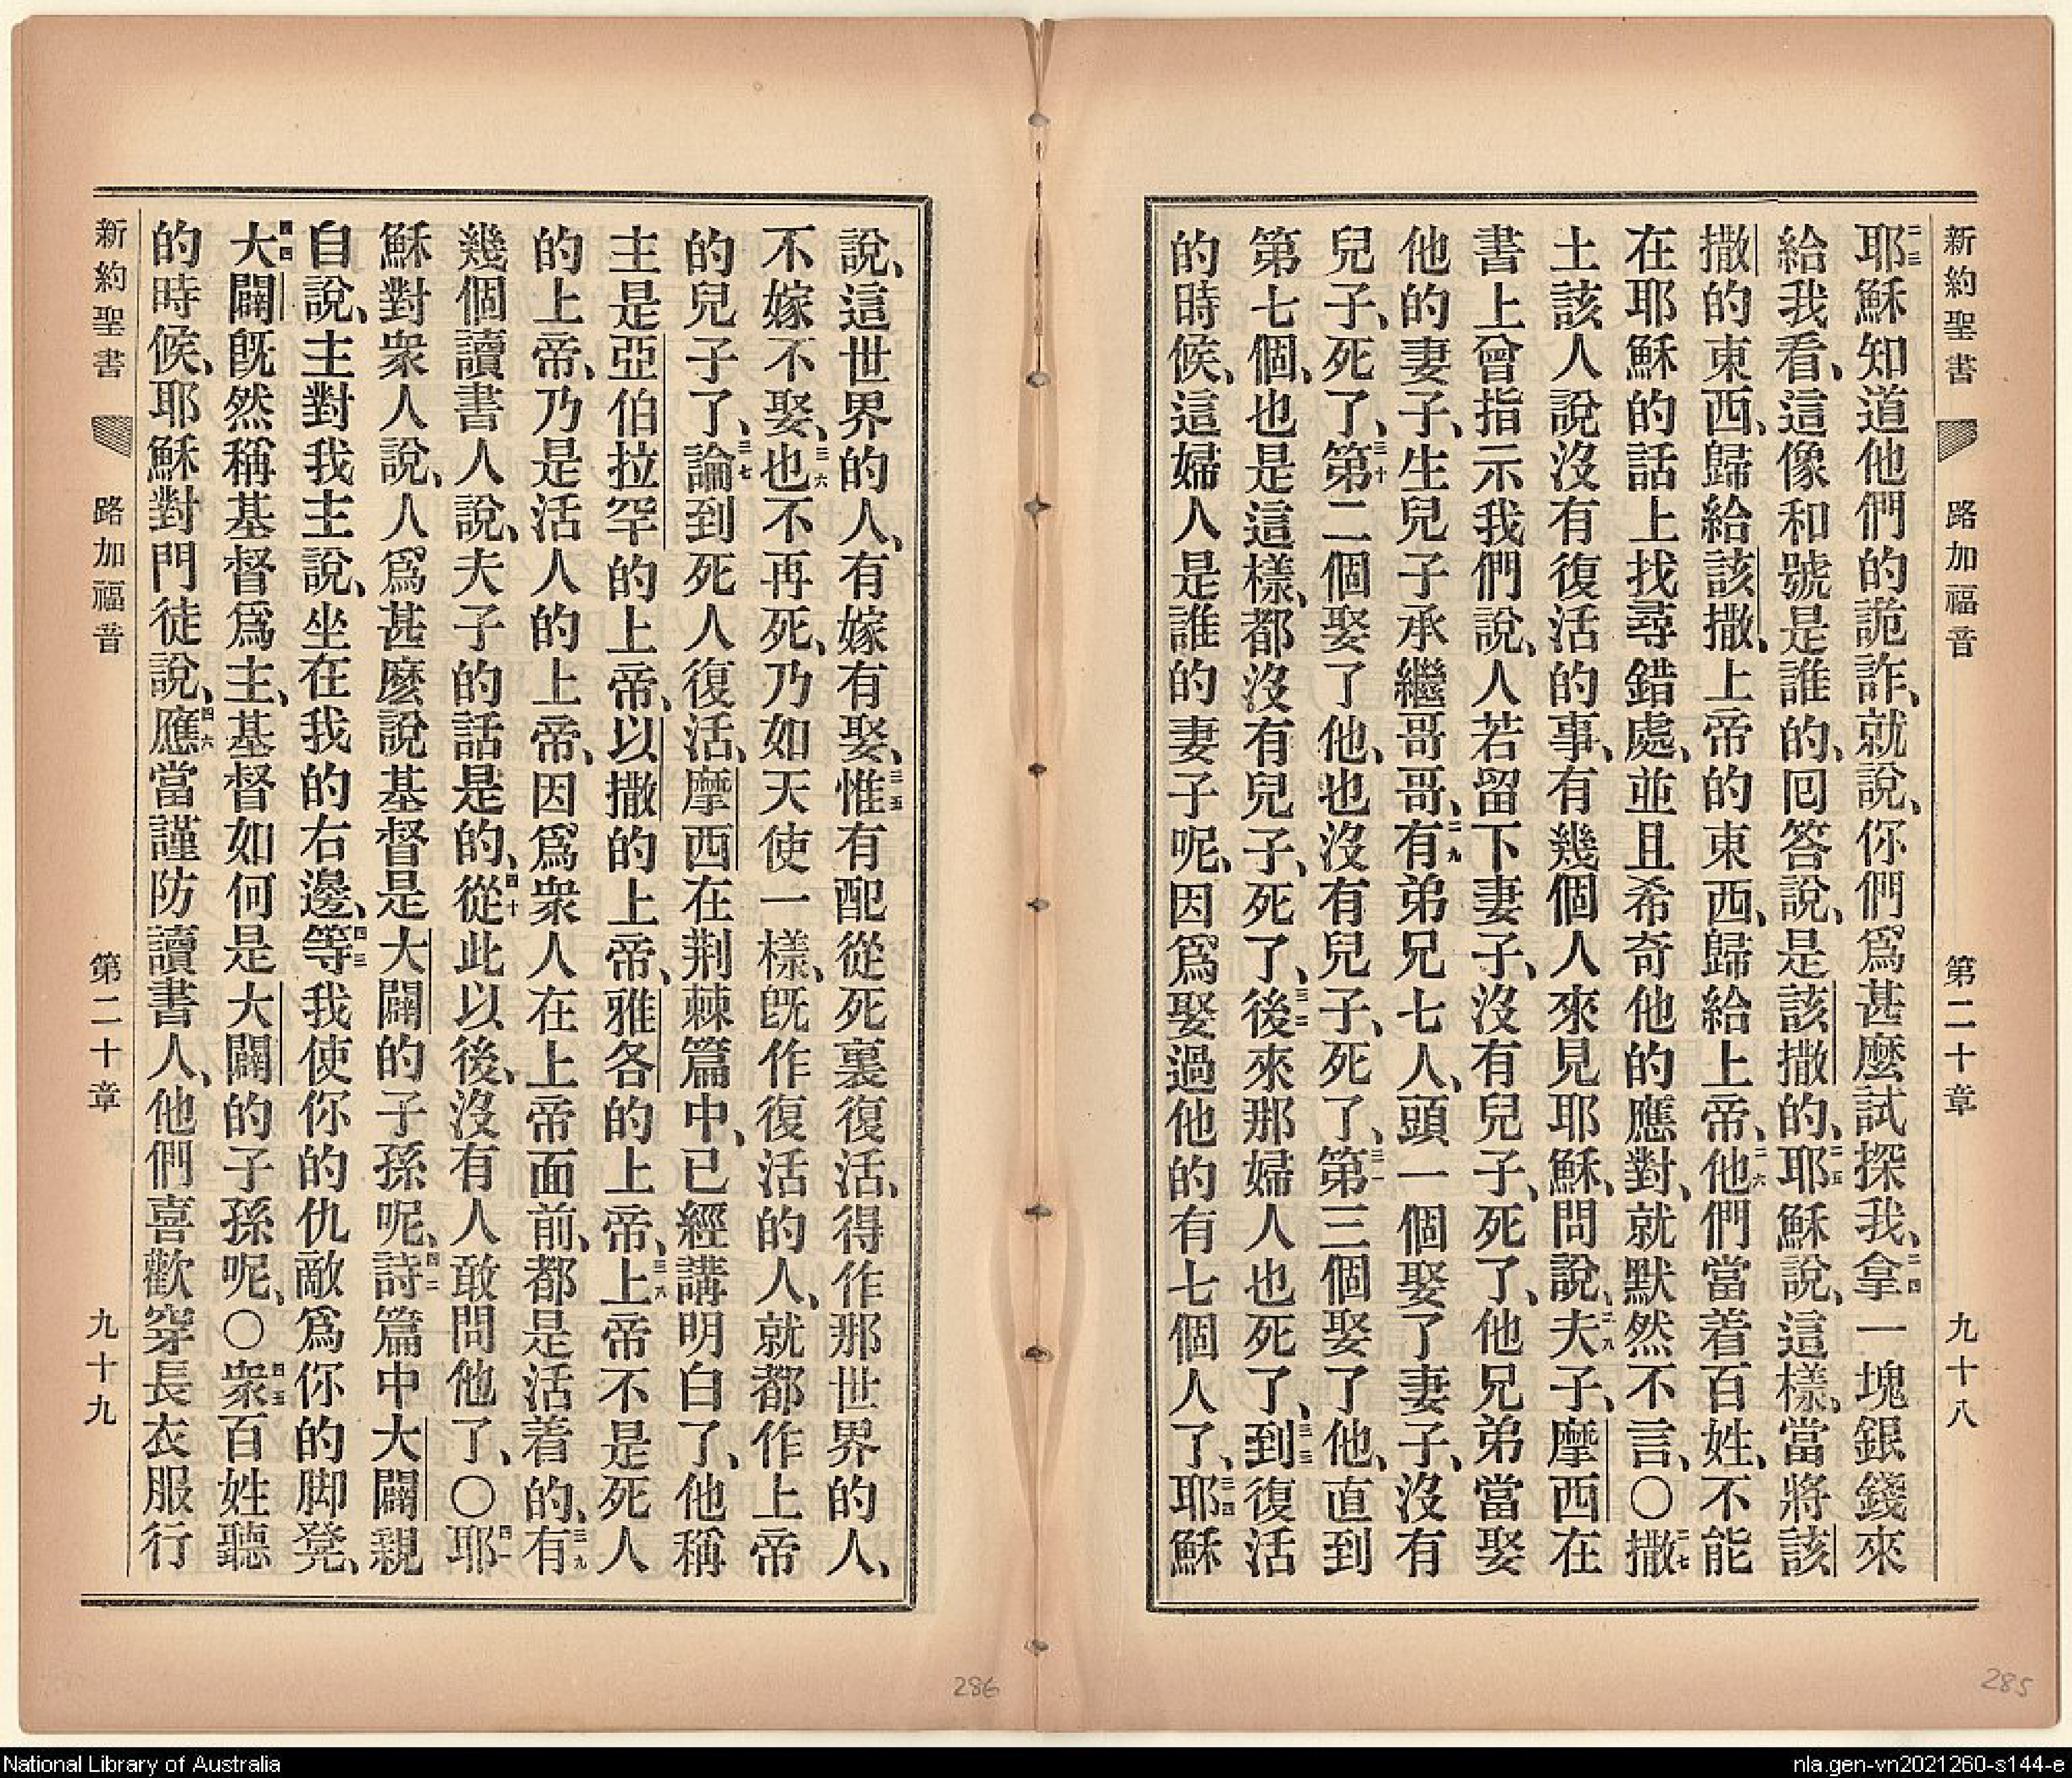 新約聖書 路加福音 第二十章 九十八
二三耶穌知道他們的詭詐、就說、你們爲甚麼試探我、二四拿一塊銀錢來
給我看、這像和號是誰的、囘答說、是該撒的、二五耶穌說、這樣、當將該
撒的東西、歸給該撒、上帝的東西、歸給上帝、二六他們當着百姓、不能
在耶穌的話上找尋錯處、並且希奇他的應對、就默然不言、〇二七撒
土該人說沒有復活的事、有幾個人來見耶穌、問說、二八夫子、摩西在
書上曾指示我們說、人若留下妻子、沒有兒子、死了、他兄弟當娶
他的妻子、生兒子承繼哥哥、二九有弟兄七人、頭一個娶了妻子、沒有
兒子、死了、三十第二個娶了他、也沒有兒子、死了、三一第三個娶了他、直到
第七個、也是這樣、都沒有兒子、死了、三二後來那婦人也死了、三三到復活
的時候、這婦人是誰的妻子呢、因爲娶過他的有七個人了、三四耶穌
說、這世界的人、有嫁有娶、三五惟有配從死裏復活、得作那世界的人、
不嫁不娶、三六也不再死、乃如天使一樣、旣作復活的人、就都作上帝
的兒子了、三七論到死人復活、摩西在荆棘篇中、已經講明白了、他稱
主是亞伯拉罕的上帝、以撒的上帝、雅各的上帝、三八上帝不是死人
的上帝、乃是活人的上帝、因爲衆人在上帝面前、都是活着的、三九有
幾個讀書人說、夫子的話是的、四十從此以後、沒有人敢問他了、〇四一耶
穌對衆人說、人爲甚麽說基督是大闢的子孫呢、四二詩篇中大闢親
自說、主對我主說、坐在我的右邊、四三等我使你的仇敵爲你的脚凳、
四四大闢旣然稱基督爲主、基督如何是大闢的子孫呢、〇四五衆百姓聽
的時候、耶穌對門徒說、四六應當謹防讀書人、他們喜歡穿長衣服行
新約聖書 路加福音 第二十章 九十九
286
285
National Library of Australia
nla.gen-vn2021260-s144-e